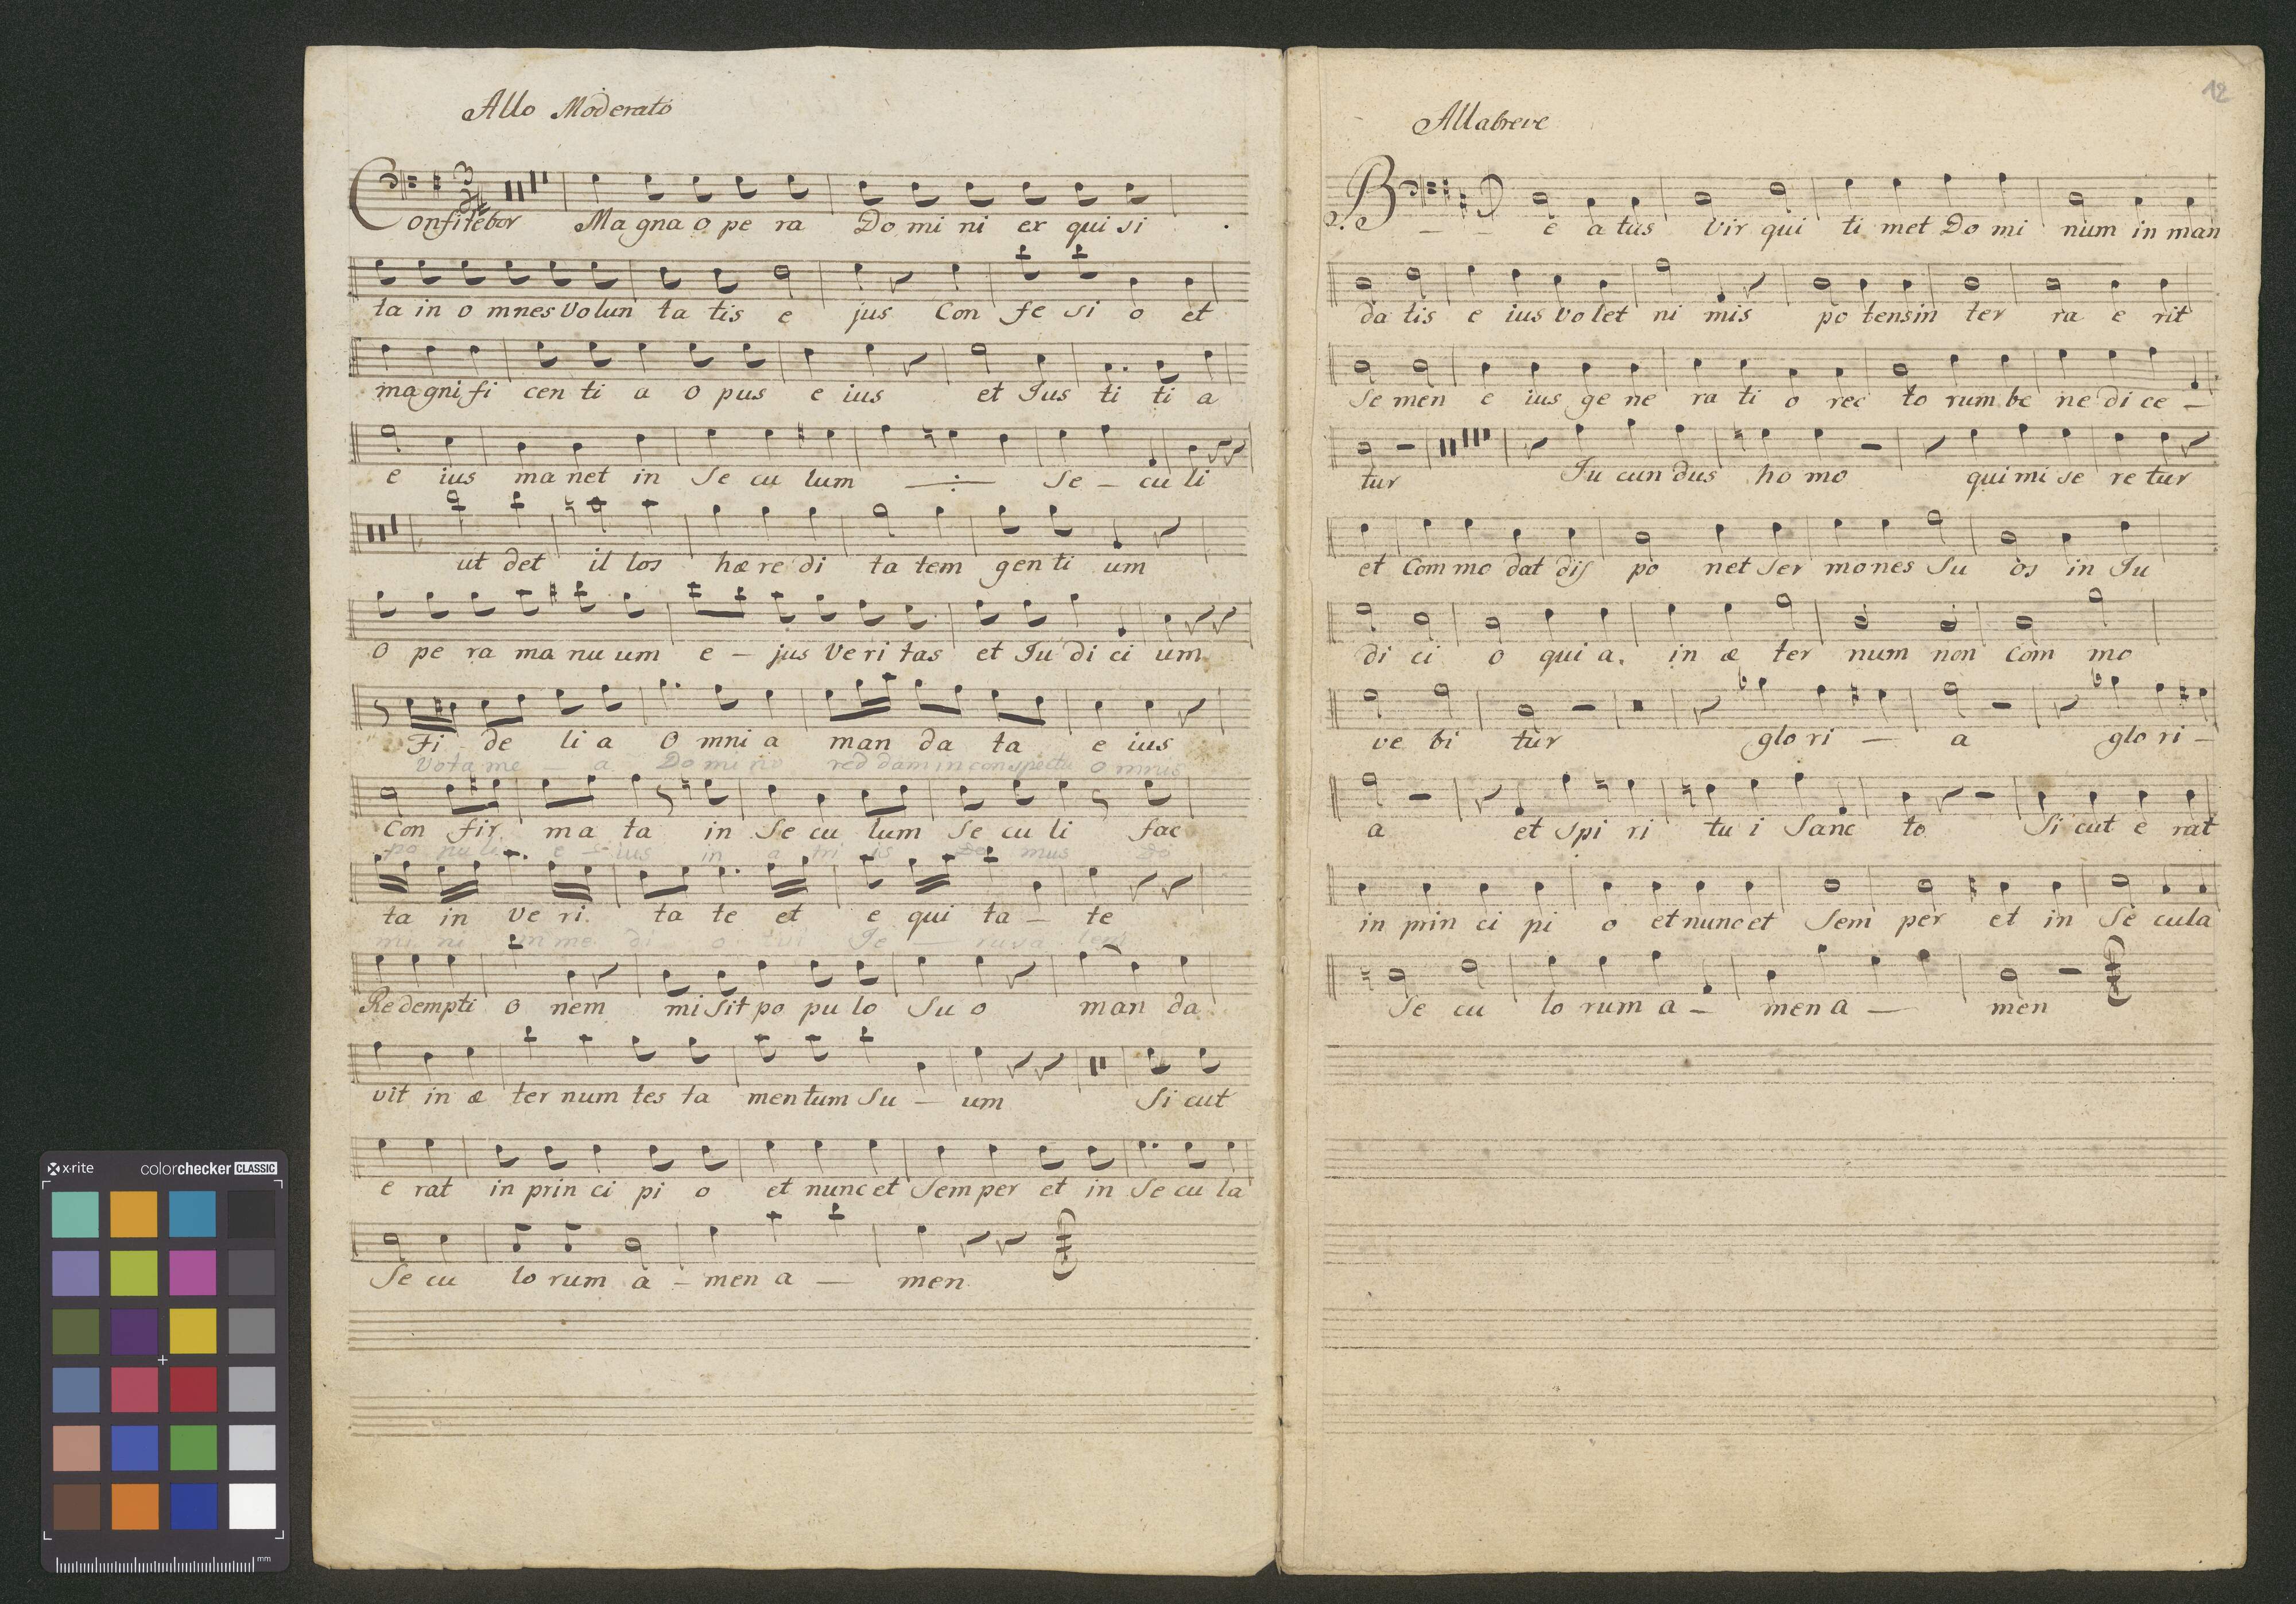 Allo Moderato
Confitebor Ma gna o pe ra Do mi ni ex qui si
ta in o mnes Volun ta tis e jus Con fe si o et
magni fi cen ti a o pus e ius et Jus ti ti a
e ius ma net in Se cu lum Se - cu li
ut det il los hæ re di ta tem gen ti um
O pe ra ma nu um e - jus Ve ri tas et Ju di ci um
Fi de li a O mni a man da ta e ius
Vota me - a Do mi no red dam in conspectu O mnis
Con fir ma ta in Se cu lum Se cu li fac
po puli e ius in a tri is Do mus Do
ta in ve ri ta te et e qui ta - te
mi ni in me di o tui Je - rusa lem
Redempti o nem mi Sit po pu lo Su o man da
vit in æ ter num tes ta men tum Su - um Si cut
e rat in prin ci pi o et nunc et Sem per et in Se cu la
Se cu lo rum a - men a - men
12
Allabreve
2. B - - e a tus Vir qui ti met Do mi num in man
da tis e ius Vo let ni mis po tens in ter ra e rit
Se men e ius ge ne ra ti o rec to rum be ne di ce -
tur Ju cun dus ho mo qui mi se re tur
et Com mo dat dis po net Ser mo nes Su os in Ju
di ci o qui a. in æ ter num non Com mo
ve bi tur glo ri - a glo ri -
a et Spi ri tu i Sanc to Si cut e rat
in prin ci pi o et nunc et Sem per et in Se cula
Se cu lo rum a - men a - men
x·rite colorchecker CLASSIC
mm